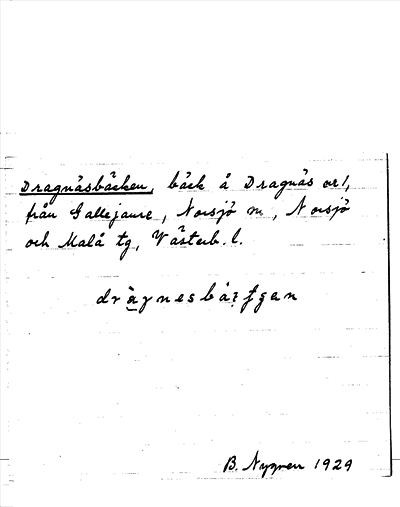 Dragnäsbäcken, bäck å Dragnäs or1,
från Gallejaure, Norsjö sn, Norsjö
och Malå tg, Västerb. l.
B. Nygren 1929